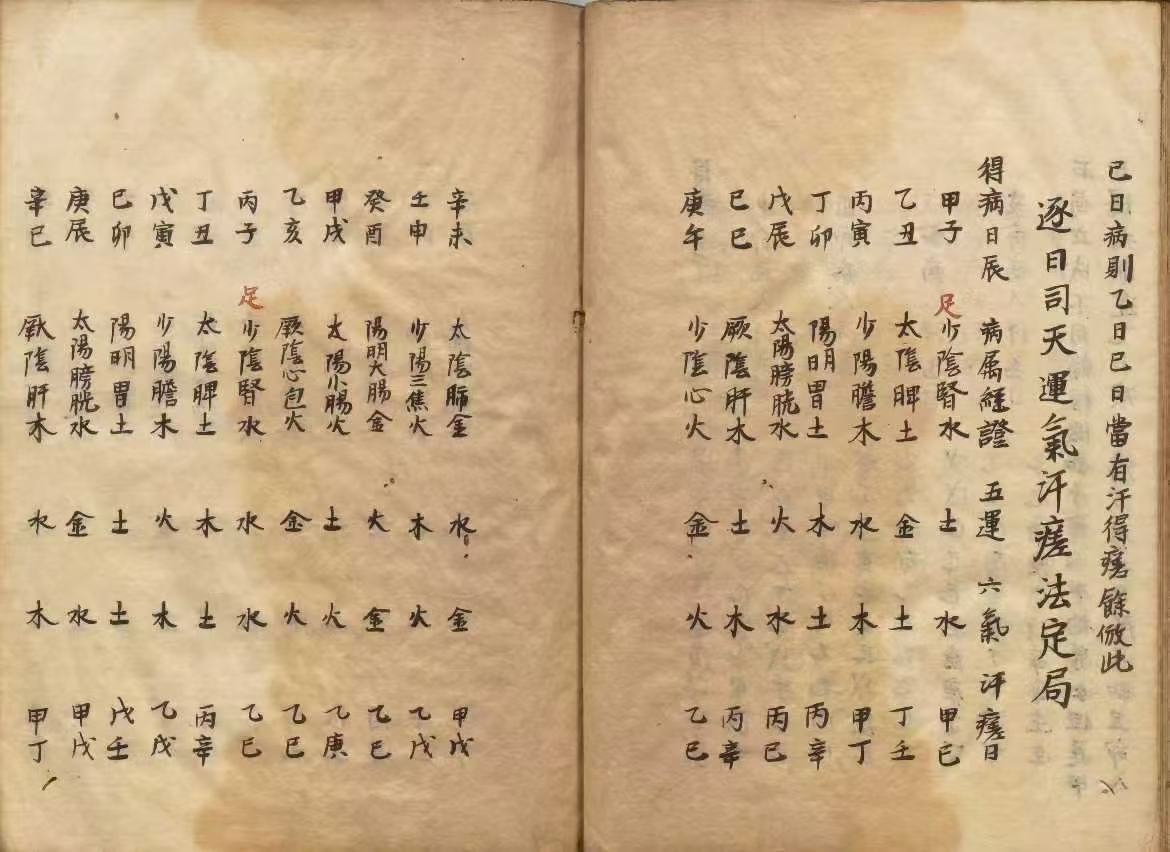 己日病則乙日己日當有汗得瘥餘倣此
逐日司天運氣汗瘥法定局
得病日辰 病属經證 五運 六氣 汗瘥日
甲子 足少陰腎水 土 水 甲己
乙丑 太陰脾土 金 土 丁壬
丙寅 少陽膽木 水 木 甲丁
丁卯 陽明胃土 木 土 丙辛
戊辰 太陽膀胱水 火 水 丙己
己巳 厥陰肝木 土 木 丙辛
庚午 少陰心火 金 火 乙己
辛未 太陰肺金 水 金 甲戊
壬申 少陽三焦火 木 火 乙戊
癸酉 陽明大腸金 火 金 乙己
甲戌 太陽小腸火 土 火 乙庚
乙亥 厥陰心包火 金 火 乙己
丙子 足少陰腎水 水 水 乙己
丁丑 太陰脾土 木 土 丙辛
戊寅 少陽膽木 火 木 乙戊
己卯 陽明胃土 土 土 戊壬
庚辰 太陽膀胱水 金 水 甲戊
辛巳 厥陰肝木 水 木 甲丁